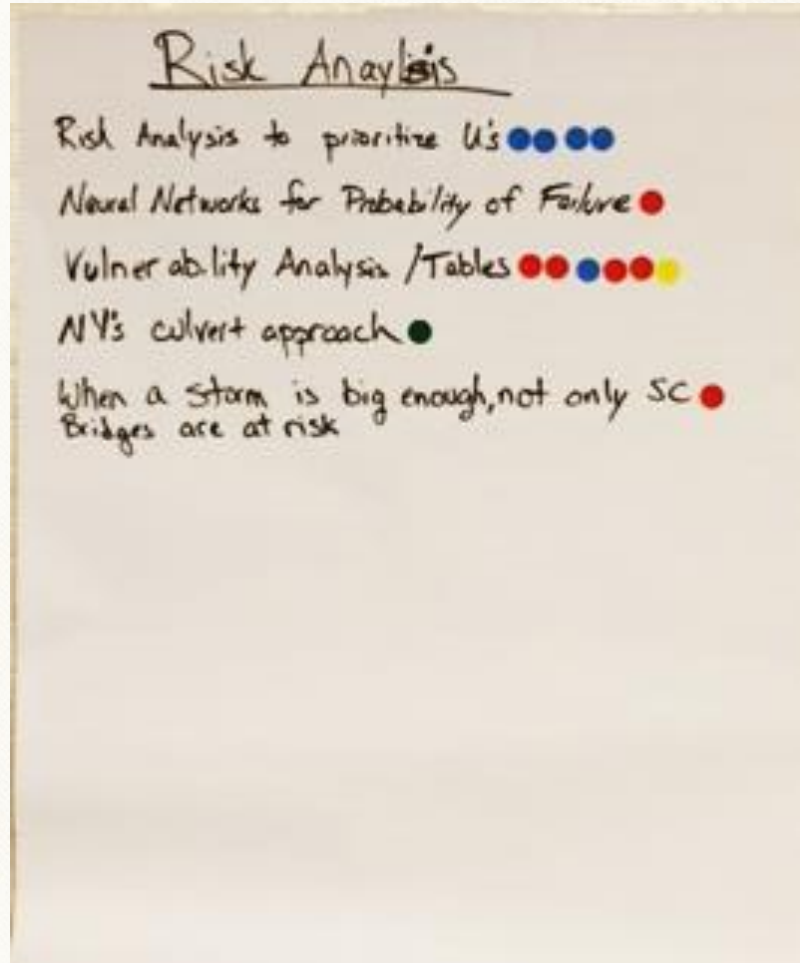 Risk Anaylsis
Risk Analysis to prioritize U's
Neural Networks for Probability of Failure
Vulnerability Analysis /Tables
NY's culvert approach
When a storm is big enough, not only SC
Bridges are at risk